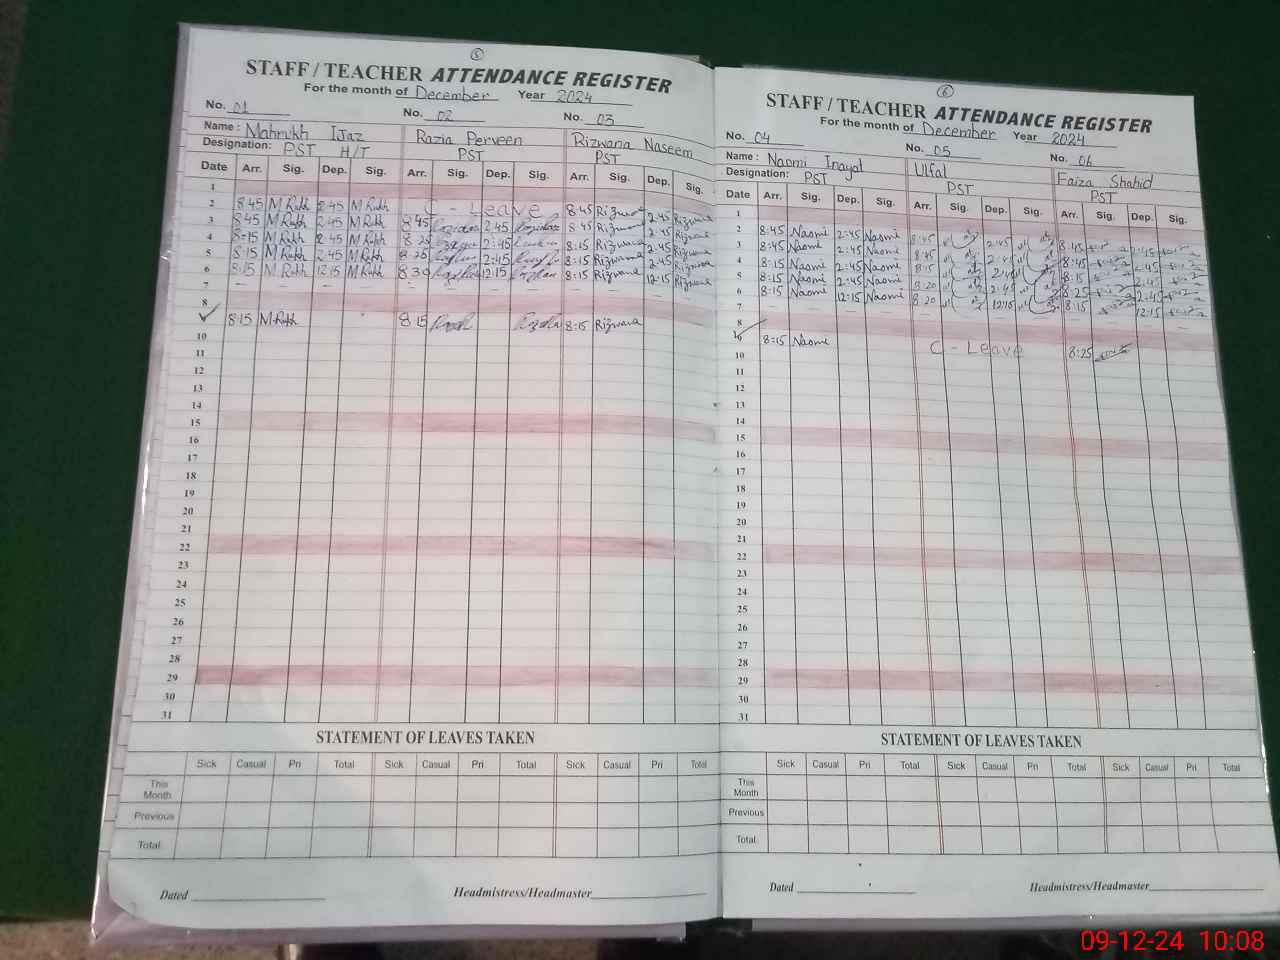 5
STAFF / TEACHER ATTENDANCE REGISTER
For the month of December Year 2024
No. 01 No. 02 No. 03
Name : Mahrukh Ijaz Razia Perveen Rizwana Naseem
Designation: PST H/T PST PST
Date Arr. Sig. Dep. Sig. Arr. Sig. Dep. Sig. Arr. Sig. Dep. Sig.
1
2 8:45 M Rukh 2:45 M Rukh C - Leave 8:45 Rizwana 2:45 Rizwana
3 8:45 M Rukh 2:45 M Rukh 8:45 2:45 8:45 Rizwana 2:45 Rizwana
4 8:15 M Rukh 2:45 M Rukh 8:25 2:45 8:15 Rizwana 2:45 Rizwana
5 8:15 M Rukh 2:45 M Rukh 8:25 2:45 8:15 Rizwana 2:45 Rizwana
6 8:15 M Rukh 12:15 M Rukh 8:30 12:15 8:15 Rizwana 12:15 Rizwana
7 – – – – – – – – – – – –
8
8:15 M Rukh 8:15 8:15 Rizwana
10
11
12
13
14
15
16
17
18
19
20
21
22
23
24
25
26
27
28
29
30
31
STATEMENT OF LEAVES TAKEN
Sick Casual Pri Total Sick Casual Pri Total Sick Casual Pri Total
This Month
Previous
Total
Dated Headmistress/Headmaster
6
STAFF / TEACHER ATTENDANCE REGISTER
For the month of December Year 2024
No. 04 No. 05 No. 06
Name : Naomi Inayat Ulfat Faiza Shahid
Designation: PST PST PST
Date Arr. Sig. Dep. Sig. Arr. Sig. Dep. Sig. Arr. Sig. Dep. Sig.
1
2 8:45 Naomi 2:45 Naomi 8:45 2:45 8:45 2:45
3 8:45 Naomi 2:45 Naomi 8:45 2:45 8:45 2:45
4 8:15 Naomi 2:45 Naomi 8:15 2:45 8:15 2:45
5 8:15 Naomi 2:45 Naomi 8:20 2:45 8:25 2:45
6 8:15 Naomi 12:15 Naomi 8:20 12:15 8:15 12:15
7 – – – – – – – – – – – –
8
9 8:15 Naomi C - Leave 8:25
10
11
12
13
14
15
16
17
18
19
20
21
22
23
24
25
26
27
28
29
30
31
STATEMENT OF LEAVES TAKEN
Sick Casual Pri Total Sick Casual Pri Total Sick Casual Pri Total
This Month
Previous
Total
Dated Headmistress/Headmaster
09-12-24 10:08